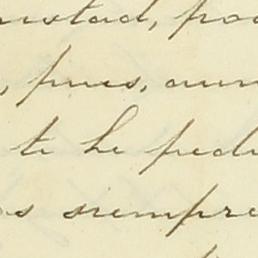 mistad, po
, pues, aun
te he pedi
os siempre